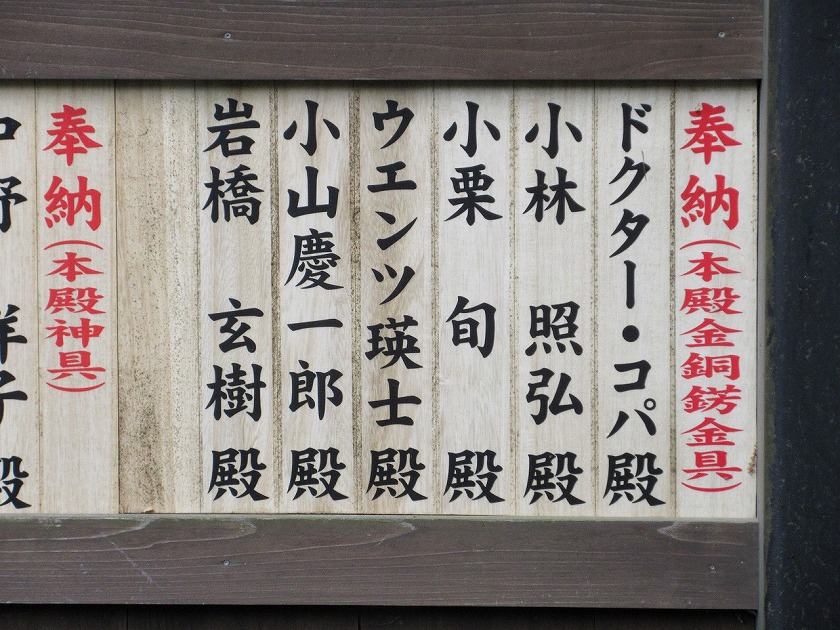 奉納(本殿金銅錺金具)
ドクター・コパ殿
小林 照弘殿
小栗 旬 殿
ウエンツ瑛士殿
小山慶一郎殿
岩橋 玄樹殿
奉納(本殿神具)
野 洋子殿